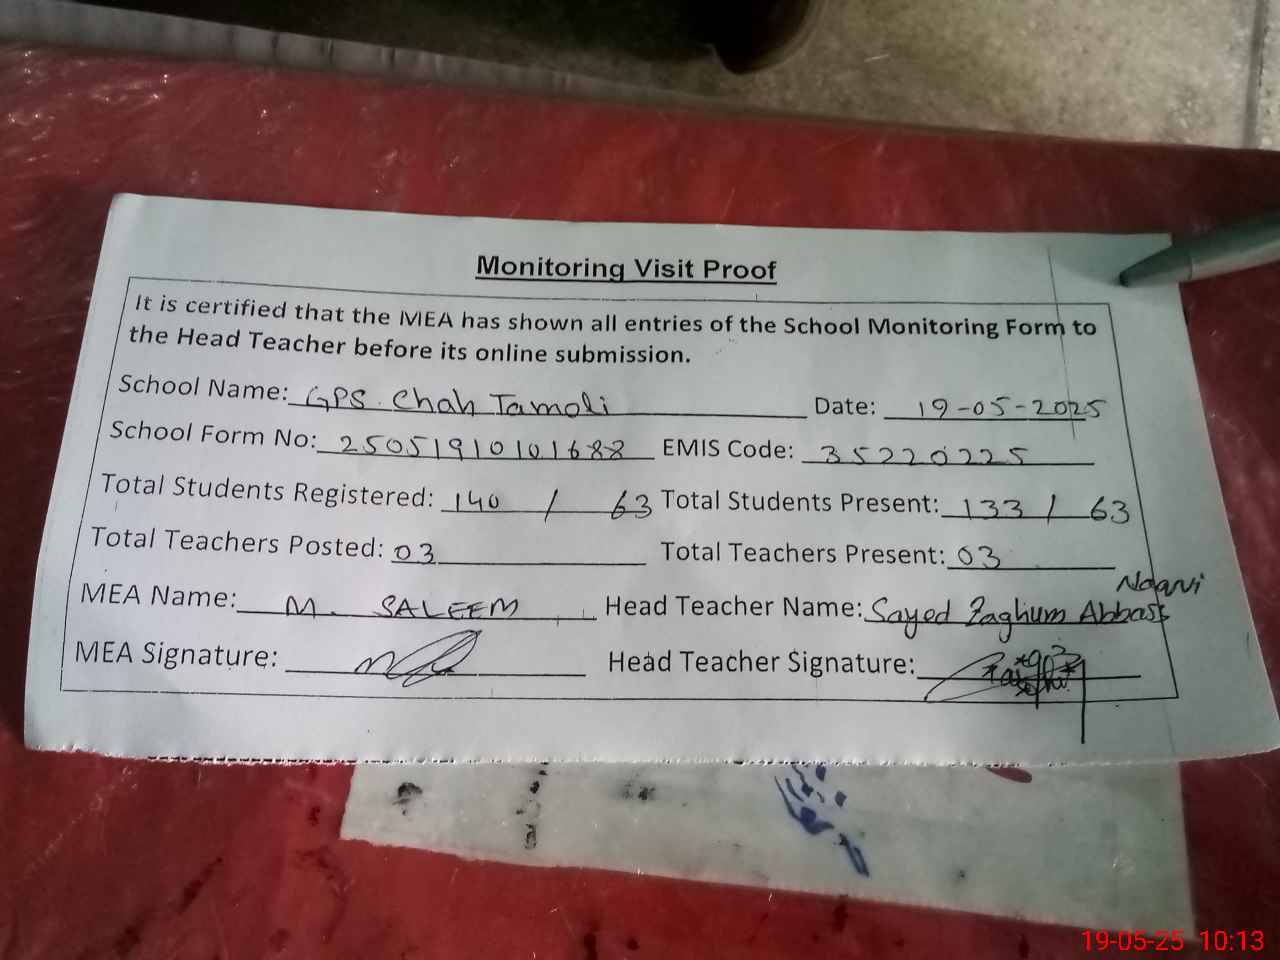 Monitoring Visit Proof
It is certified that the MEA has shown all entries of the School Monitoring Form to
the Head Teacher before its online submission.
School Name: GPS. Chah Tamoli Date: 19-05-2025
School Form No: 25051910101688 EMIS Code: 35220225
Total Students Registered: 140 / 63 Total Students Present: 133 / 63
Total Teachers Posted: 03 Total Teachers Present: 03
MEA Name: M. SALEEM Head Teacher Name: Sayed Zaghum Abbass Naqvi
MEA Signature: Head Teacher Signature:
19-05-25 10:13